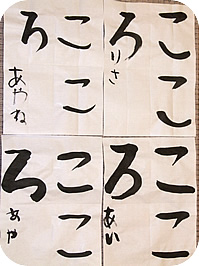 ここ
ろ
りさ
ここ
ろ
あやね
ここ
ろ
あい
ここ
ろ
あや